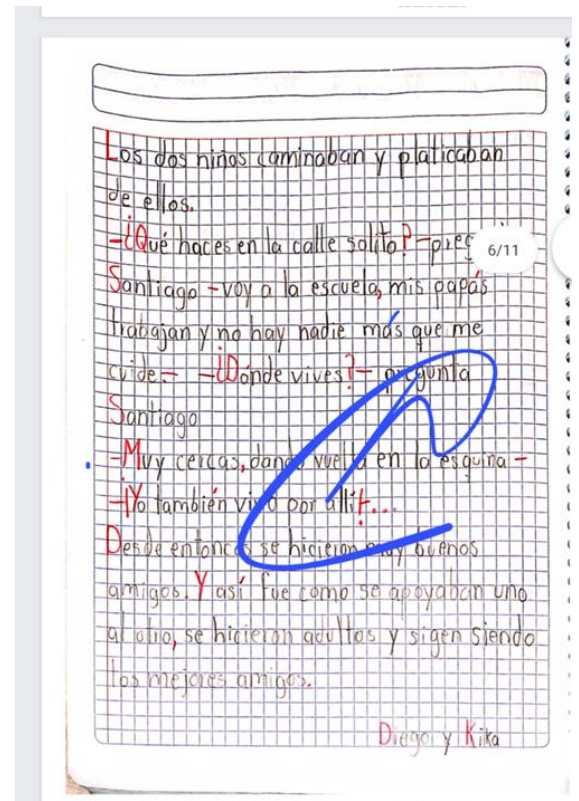 Los dos niños caminaban y platicaban
de ellos.
-¿Qué haces en la calle solito?-preg
6/11
Santiago -voy a la escuela, mis papás
trabajan y no hay nadie más que me
cuide- -¿Dónde vives?- pregunta
Santiago
-Muy cercas, dando vuelta en la esquina-
-¡Yo también vivo por allí!...
Desde entonces se hicieron muy buenos
amigos. Y así fue como se apoyaban uno
al otro, se hicieron adultos y sigen siendo
los mejores amigos.
Diego y Kika